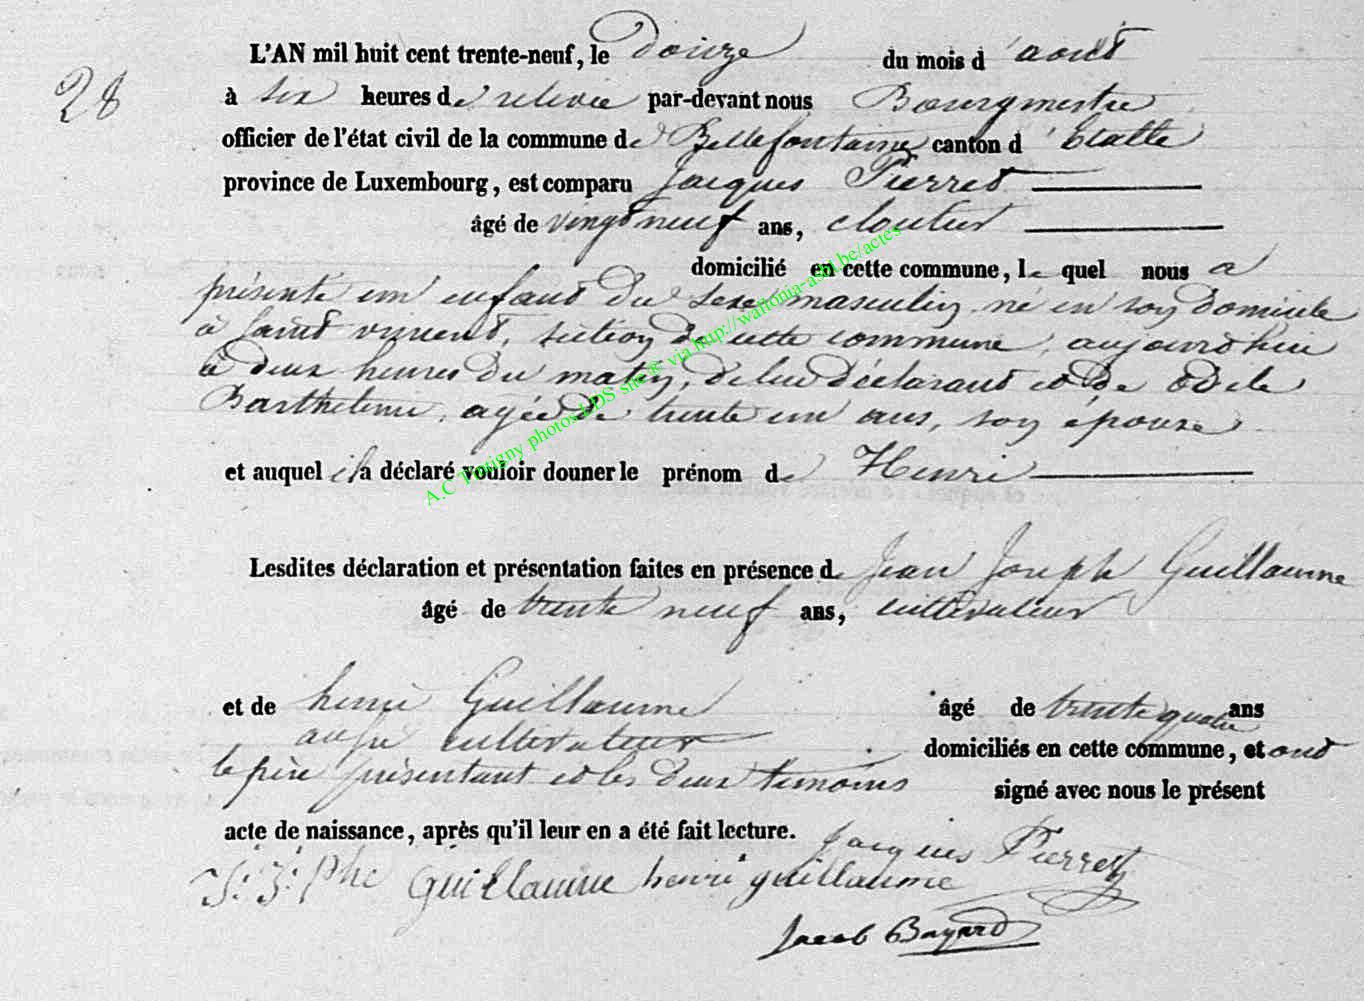 L'AN mil huit cent trente-neuf, le Douze du mois d'août
28
à six heures de relevée par-devant nous Bourgmestre
officier de l'état civil de la commune de Bellefontaine canton d'Etalle
province de Luxembourg, est comparu Jacques Pierret
âgé de vingt neuf ans, cloutier
domicilié en cette commune, le quel nous a
présenté un enfant du sexe masculin né en son domicile
à Saint vincent, section de cette commune, aujourdhui
à deux heures du matin, de lui déclarant et de Odele
Barthelemi, agée de trente un ans, son épouse
et auquel il a déclaré vouloir donner le prénom de Henri
Lesdites déclaration et présentation faites en présence de Jean Joseph Guillaume
âgé de trente neuf ans, cultivateur
et de henri Guillaume âgé de trente quatre ans
aussi cultivateur domiciliés en cette commune, et ont
le père présentant et les deux temoins signé avec nous le présent
acte de naissance, après qu'il leur en a été fait lecture.
Jacques Pierret
J: J: Phe Guillaume henri guillaume
Jacob Bayard
A.C Tintigny photos LDS site © via http://wallonia-asbl.be/actes